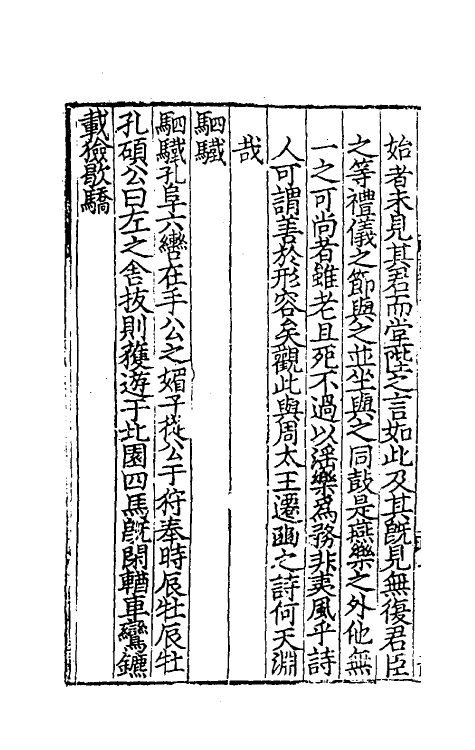 始者未見其君而堂陛之言如此及其旣見無復君臣
之等禮儀之節與之並坐與之同鼓是燕樂之外他無
一之可尚者雖老且死不過以淫樂爲務非夷風乎詩
人可謂善於形容矣觀此與周太王遷豳之詩何天淵
哉
駟驖
駟驖孔阜六轡在手公之媚子從公于狩奉時辰牡辰牡
孔碩公曰左之舍拔則獲遊于北園四馬旣閑輶車鸞鑣
載獫歇驕